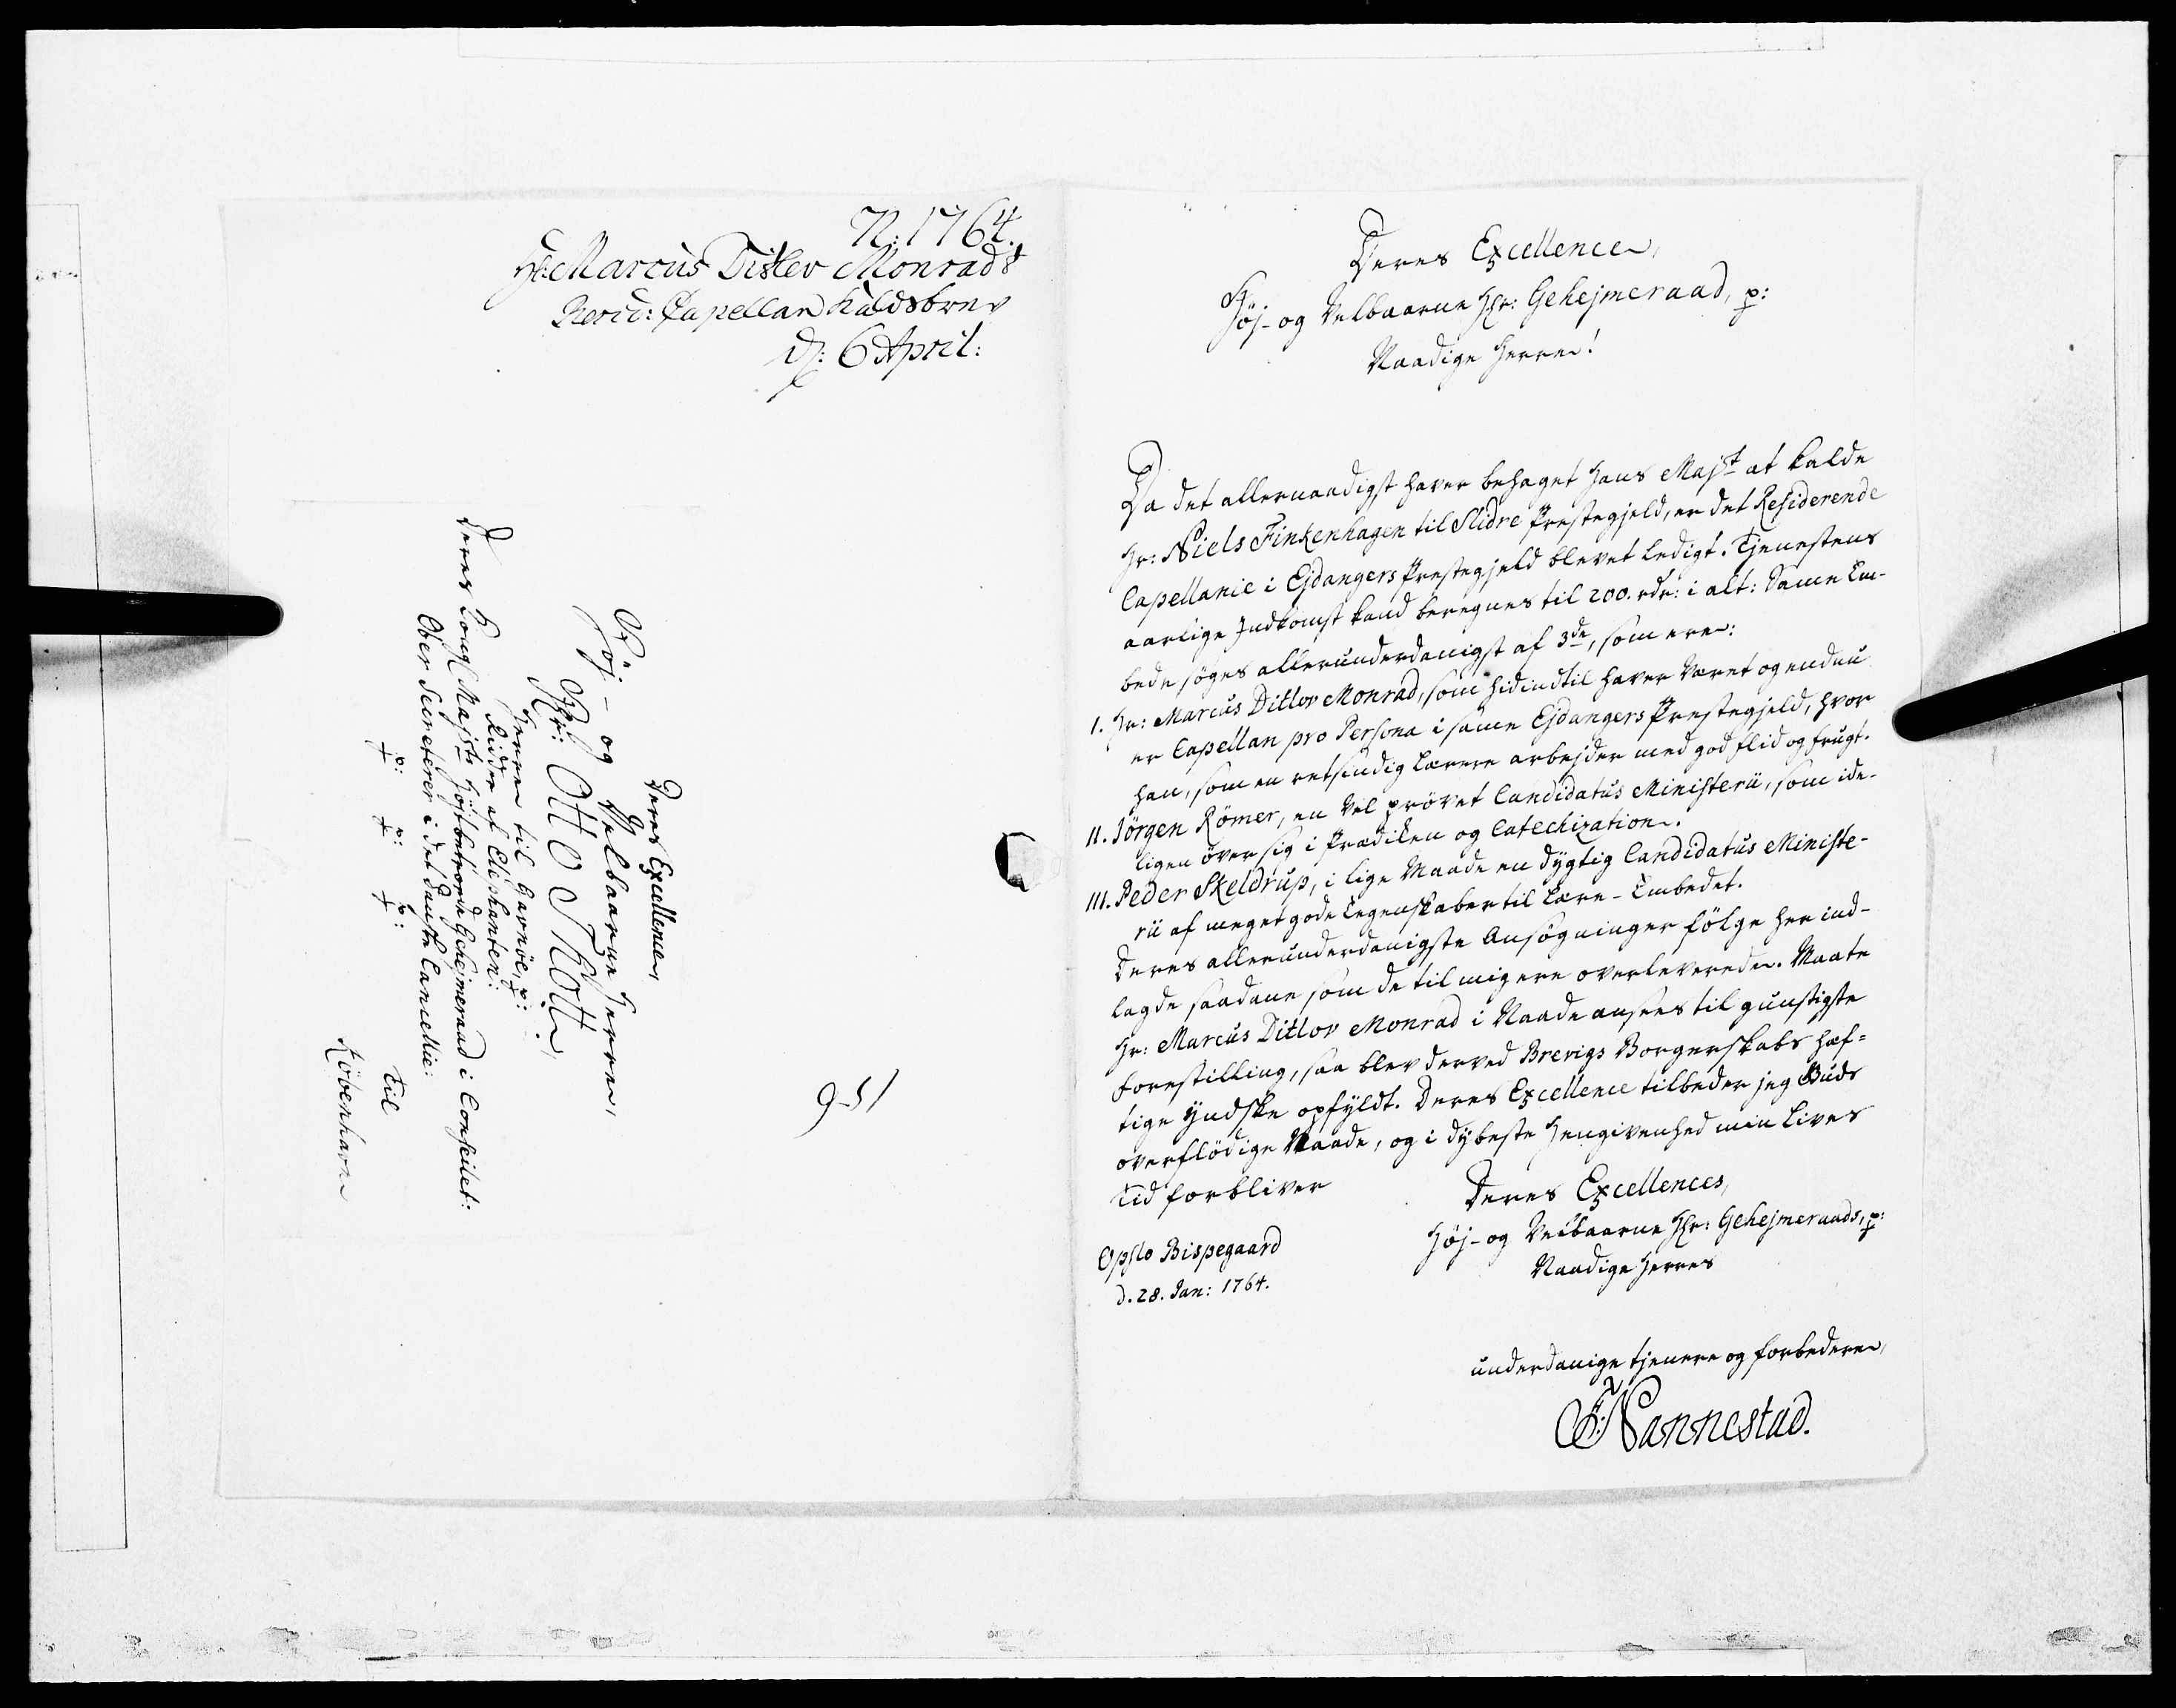 N: 1764.
Hr: Marcus Ditlev Monrads
Resid: Capellan Kaldsbrev
d: 6 April:
Deres Excellence,
Höj- og Velbaarne Herre,
Hr: Otto Thott,
Herre til Gavnöe, p:
Ridder af Elephanten:
Deres Kongl Majsts höjstbetroede Gehejmeraad i Conseilet:
Ober Secreterer i det danske Cancellie:
p: p: p:
Til
Kiöbenhavn
9-51
Deres Excellence,
Höj- og Velbaarne Hr: Gehejmeraad, p:
Naadige Herre!
Da det allernaadigst haver behaget Hans Majst at kalde
Hr: Niels Finkenhagen til Slidre Prestegjeld, er det Residerende
Capellanie i Ejdangers Prestegjeld blevet ledigt. Tjenestens
aarlige Indkomst kand beregnes til 200. rdr: i alt: Same Em-
bede söges allerunderdanigst af 3de, som ere:
I. Hr: Marcus Ditlov Monrad, som hidindtil haver været og endnu
er Capellan pro Persona i same Ejdangers Prestegjeld, hvor
han, som en retsindig Lærere arbejder med god flid og frugt.
II. Jörgen Römer, en vel prövet Candidatus Ministerii, som ide-
ligen över sig i Prædiken og Catechization.
III. Peder Skeldrup, i lige Maade en dygtig Candidatus Ministe-
rii af meget gode Egenskaber til Lære-Embedet.
Deres allerunderdanigste Ansögninger fölge her ind-
lagde saadane som de til mig ere overleverede. Maate
Hr: Marcus Ditlov Monrad i Naade ansees til gunstigste
forestilling, saa blev derved Brevigs Borgerskabs hæf-
tige Yndske opfyldt. Deres Excellence tilbeder jeg Guds
overflödige Naade, og i dybeste Hengivenhed min Lives
Tid forbliver
Deres Excellences,
Höj- og Velbaarne Hr: Gehejmeraads, p:
Naadige Herres
Opslo Bispegaard
d. 28. Jan: 1764.
underdanige tjenere og forbedere,
F: Nannestad.